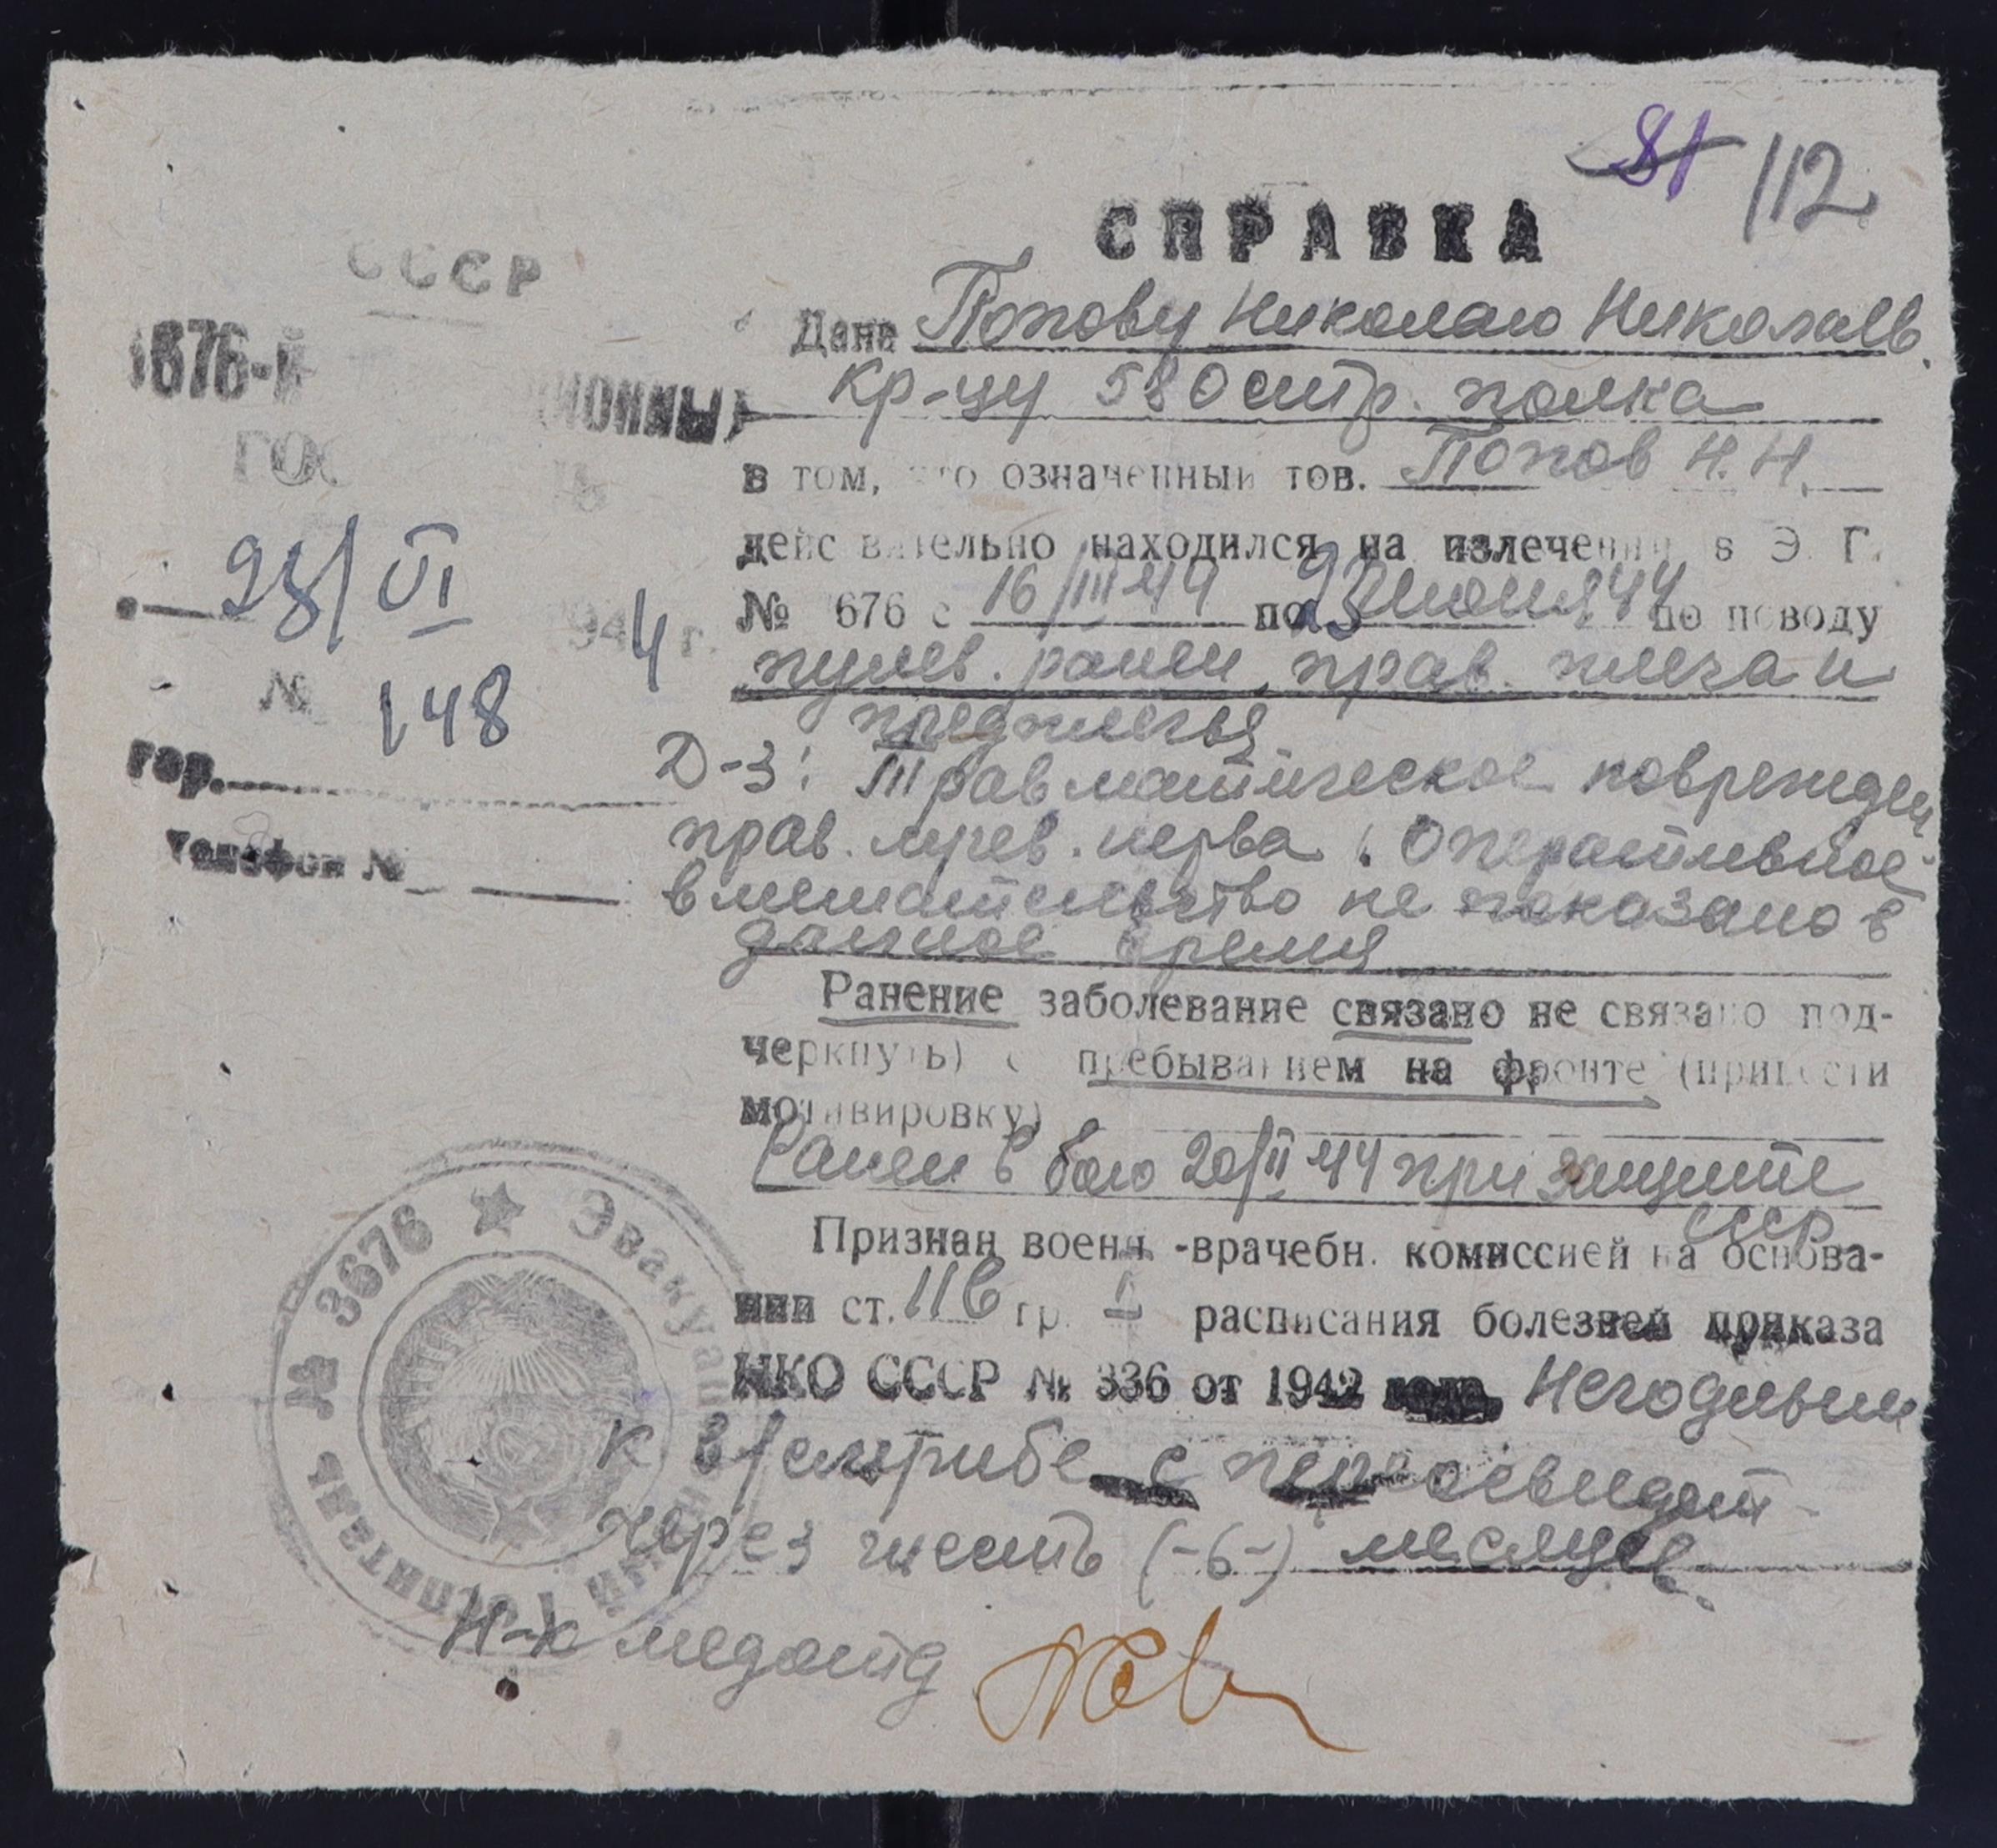 81 112
СПРАВКА
СССР
Дана Попову Николаю Николаев.
1676-й
кр-цу 580 стр. полка
в том, что означенный тов. Попов Н.Н.
действительно находился на излечении в Э. Г.
№ 1676 с 16/III 44 по 23 июня 44 по поводу
23/VI 1944 г.
пулев. ранен. прав. плеча и
предплечья
№ 148
Д-з: Травматическое поврежден
гор.
прав. лучев. нерва. Оперативное
Телефон №
вмешательство не показано в
данное время
Ранение заболевание связано не связано под-
черкнуть) с пребыванием на фронте (привести
мотивировку)
Ранен в бою 20/II 44 при защите
СССР
Признан военн.-врачебн. комиссией на основа-
нии ст. 11в гр. I расписания болезней приказа
НКО СССР № 336 от 1942 года Негодным
к в/службе с переосвидет
через шесть (-6-) месяцев.
Н-к медотд
Эвакуационный Госпиталь № 3676